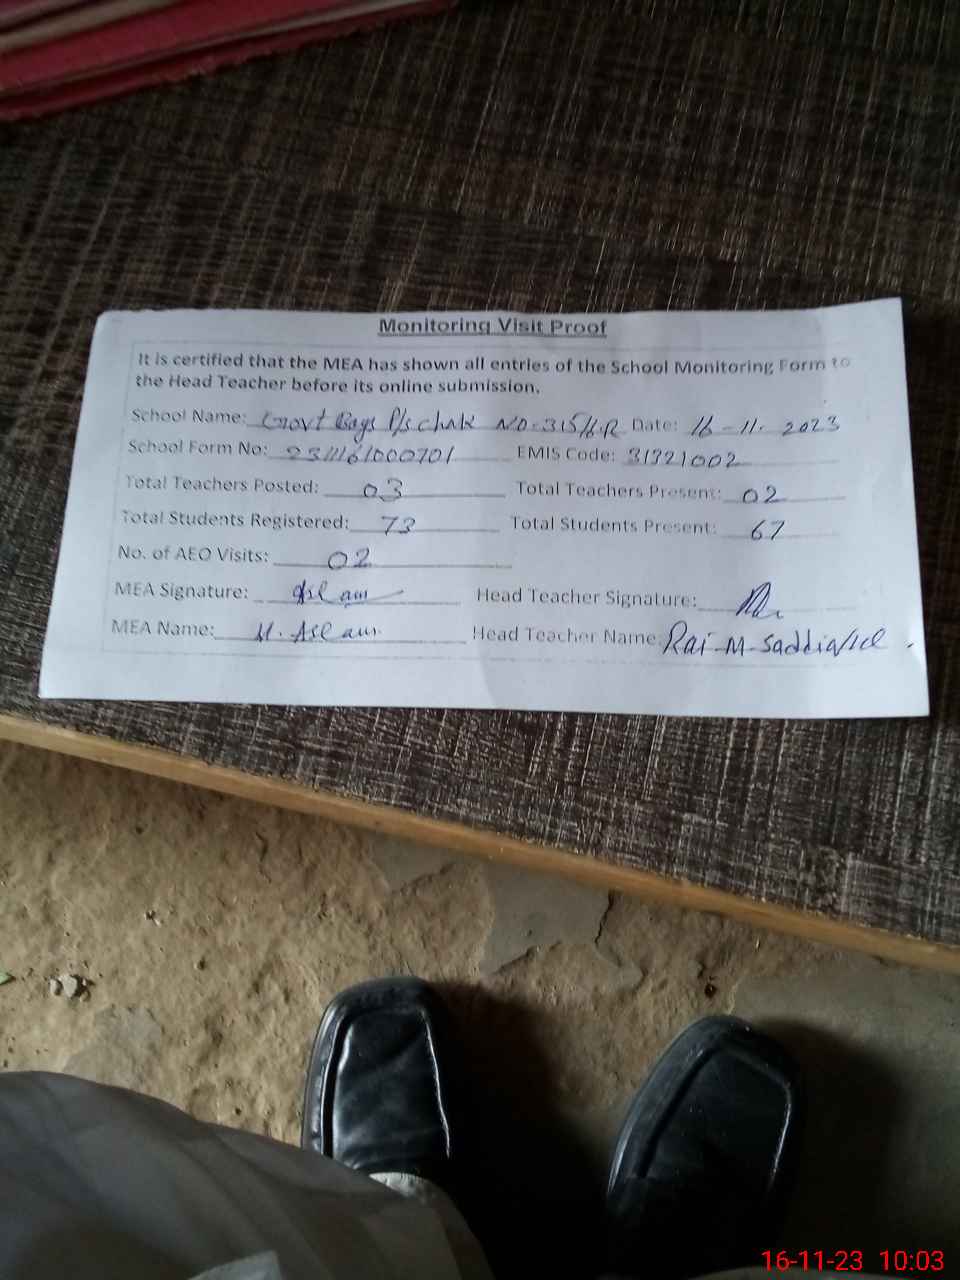 Monitoring Visit Proof
It is certified that the MEA has shown all entries of the School Monitoring Form to
the Head Teacher before its online submission.
School Name: Govt Boys P/s chak NO. 315/H.R Date: 16-11-2023
School Form No: 231161000701 EMIS Code: 31321002
Total Teachers Posted: 03 Total Teachers Present: 02
Total Students Registered: 73 Total Students Present: 67
No. of AEO Visits: 02
MEA Signature: Aslam Head Teacher Signature:
MEA Name: M. Aslam Head Teacher Name: Rai-M-
16-11-23 10:03